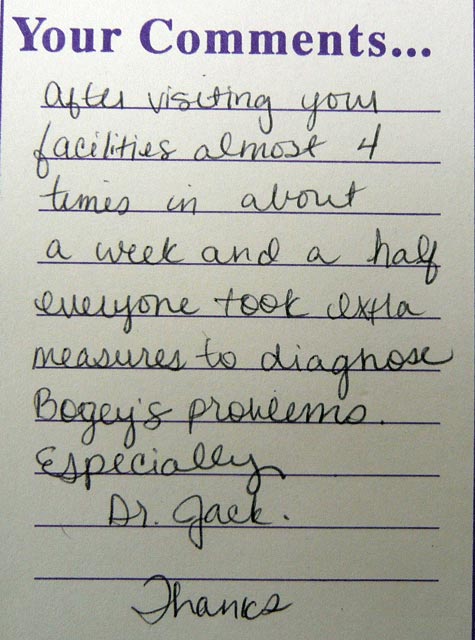 Your Comments...
After visiting your
facilities almost 4
times in about
a week and a half
everyone took extra
measures to diagnose
Bogey's problems.
Especially
Dr. Jack.
Thanks